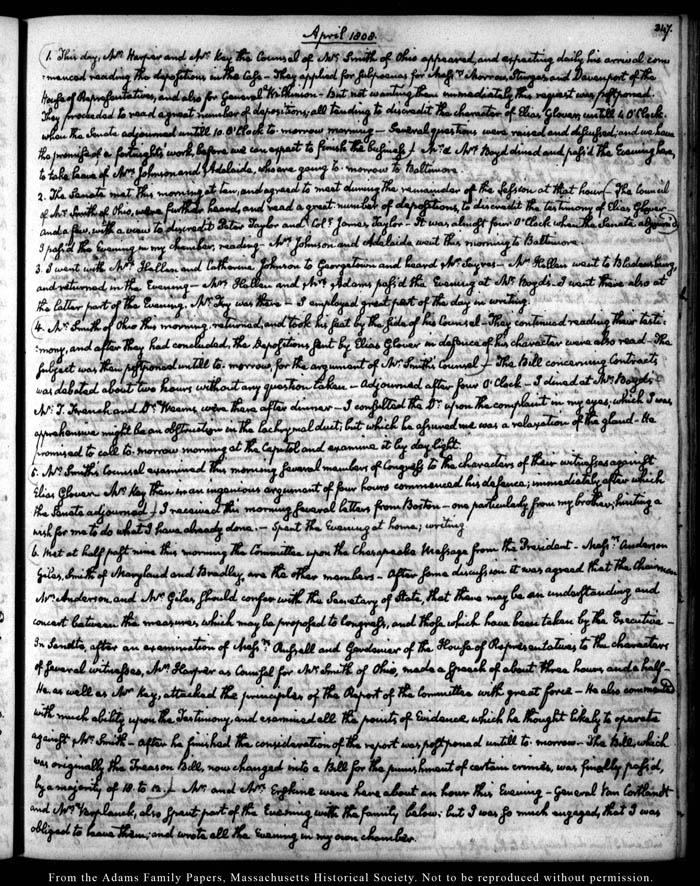 April 1808.
347.
1. This day, Mr. Harper and Mr. Key the Counsel of Mr. Smith of Ohio appeared, and expecting daily his arrival com
=menced reading the depositions in the Case — They applied for subpoenas for Messrs. Morrow, Sturges and Davenport of the
House of Representatives, and also for General Wilkinson — But not wanting them immediately the request was postponed.
They proceeded to read a great number of depositions; all tending to discredit the character of Elias Glover; untill 4 O'Clock.
when the Senate adjourned untill 10. O'Clock to-morrow morning — Several questions were raised and discussed; and we have
the promise of a fortnight's work, before we can expect to finish the business — Mr. & Mrs. Boyd dined and pass'd the Evening here,
to take leave of Mrs. Johnson and Adelaide, who are going to-morrow to Baltimore.
2. The Senate met this morning at ten, and agreed to meet during the remainder of the Session at that hour — The Council
of Mr. Smith of Ohio, were further heard, and read a great number of depositions, to discredit the testimony of Elias Glover —
and a few, with a view to discredit Peter Taylor and Coll. James Taylor — It was almost four O'Clock when the Senate adjourned,
I pass'd the evening in my chamber, reading — Mrs. Johnson and Adelaide went this morning to Baltimore.
3. I went with Mrs. Hellen and Catherine Johnson to Georgetown and heard Mr. Sayres — Mr. Hellen went to Bladensburg,
and returned in the Evening — Mrs. Hellen and Mrs. Adams pass'd the Evening at Mr. Boyd's — I went there also at
the latter part of the Evening. Mr. Fry was there — I employed great part of the day in writing.
4. Mr. Smith of Ohio this morning returned, and took his seat by the side of his Counsel — They continued reading their testi
=mony, and after they had concluded, the Depositions sent by Elias Glover in defence of his character were also read — The
subject was then postponed untill to-morrow, for the argument of Mr. Smith's Counsel — The Bill concerning Contracts
was debated about two hours without any question taken — Adjourned after four O'Clock — I dined at Mr. Boyd's
Mr. T. French and Dr. Weems were there after dinner — I consulted the Dr. upon the complaint in my eyes; which I was
apprehensive might be an obstruction in the lachrymal duct; but which he assured me was a relaxation of the gland — He
promised to call to-morrow morning at the Capitol and examine it by day light.
5. Mr. Smith's Counsel examined this morning several members of Congress to the characters of their witnesses against
Elias Glover — Mr. Key then in an ingenious argument of four hours commenced his defence; immediately after which
the Senate adjourned — I received this morning several letters from Boston — one particularly from my brother, hinting a
wish for me to do what I have already done. — Spent the Evening at home; writing
6. Met at half past nine this morning the Committee upon the Chesapeake Message from the President — Messrs. Anderson
Giles, Smith of Maryland and Bradley, are the other members — After some discussion it was agreed that the Chairman
Mr. Anderson, and Mr. Giles should confer with the Secretary of State, that there may be an understanding and
concert between the measures, which may be proposed to Congress, and those which have been taken by the Executive —
In Senate, after an examination of Messrs. Russell and Gardenier of the House of Representatives to the characters
of several witnesses, Mr. Harper as Counsel for Mr. Smith of Ohio, made a speech of about three hours and a half —
He, as well as Mr. Key, attacked the principles of the Report of the Committee with great force — He also commented
with much ability upon the Testimony, and examined all the points of Evidence, which he thought likely to operate
against Mr. Smith — After he finished the consideration of the report was postponed untill to-morrow — The Bill, which
was originally the Treason Bill, now changed into a Bill for the punishment of certain crimes, was finally pass'd,
by a majority of 18. to 12. — Mr. and Mrs. Erskine were here about an hour this Evening — General Van Cortlandt
and Mr. Verplanck, also spent part of the Evening with the family below; but I was so much engaged, that I was
obliged to leave them; and wrote all the Evening in my own chamber.
From the Adams Family Papers, Massachusetts Historical Society. Not to be reproduced without permission.